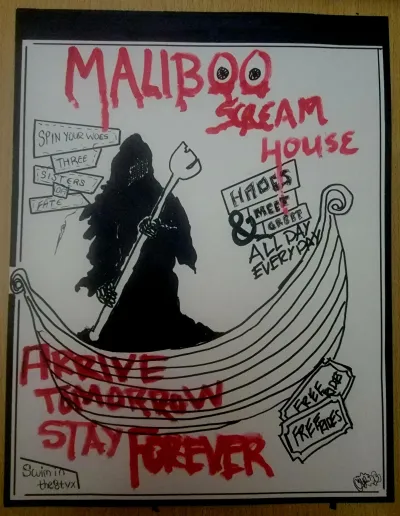 MALIBOO
SCREAM
HOUSE
SPIN YOUR WOES
THREE
SISTERS
OF
FATE
HADES
& MEET
GREET
ALL DAY
EVERYDAY
ARRIVE
TOMORROW
STAY FOREVER
FREE
FREE RIDES
Swim in
the Styx